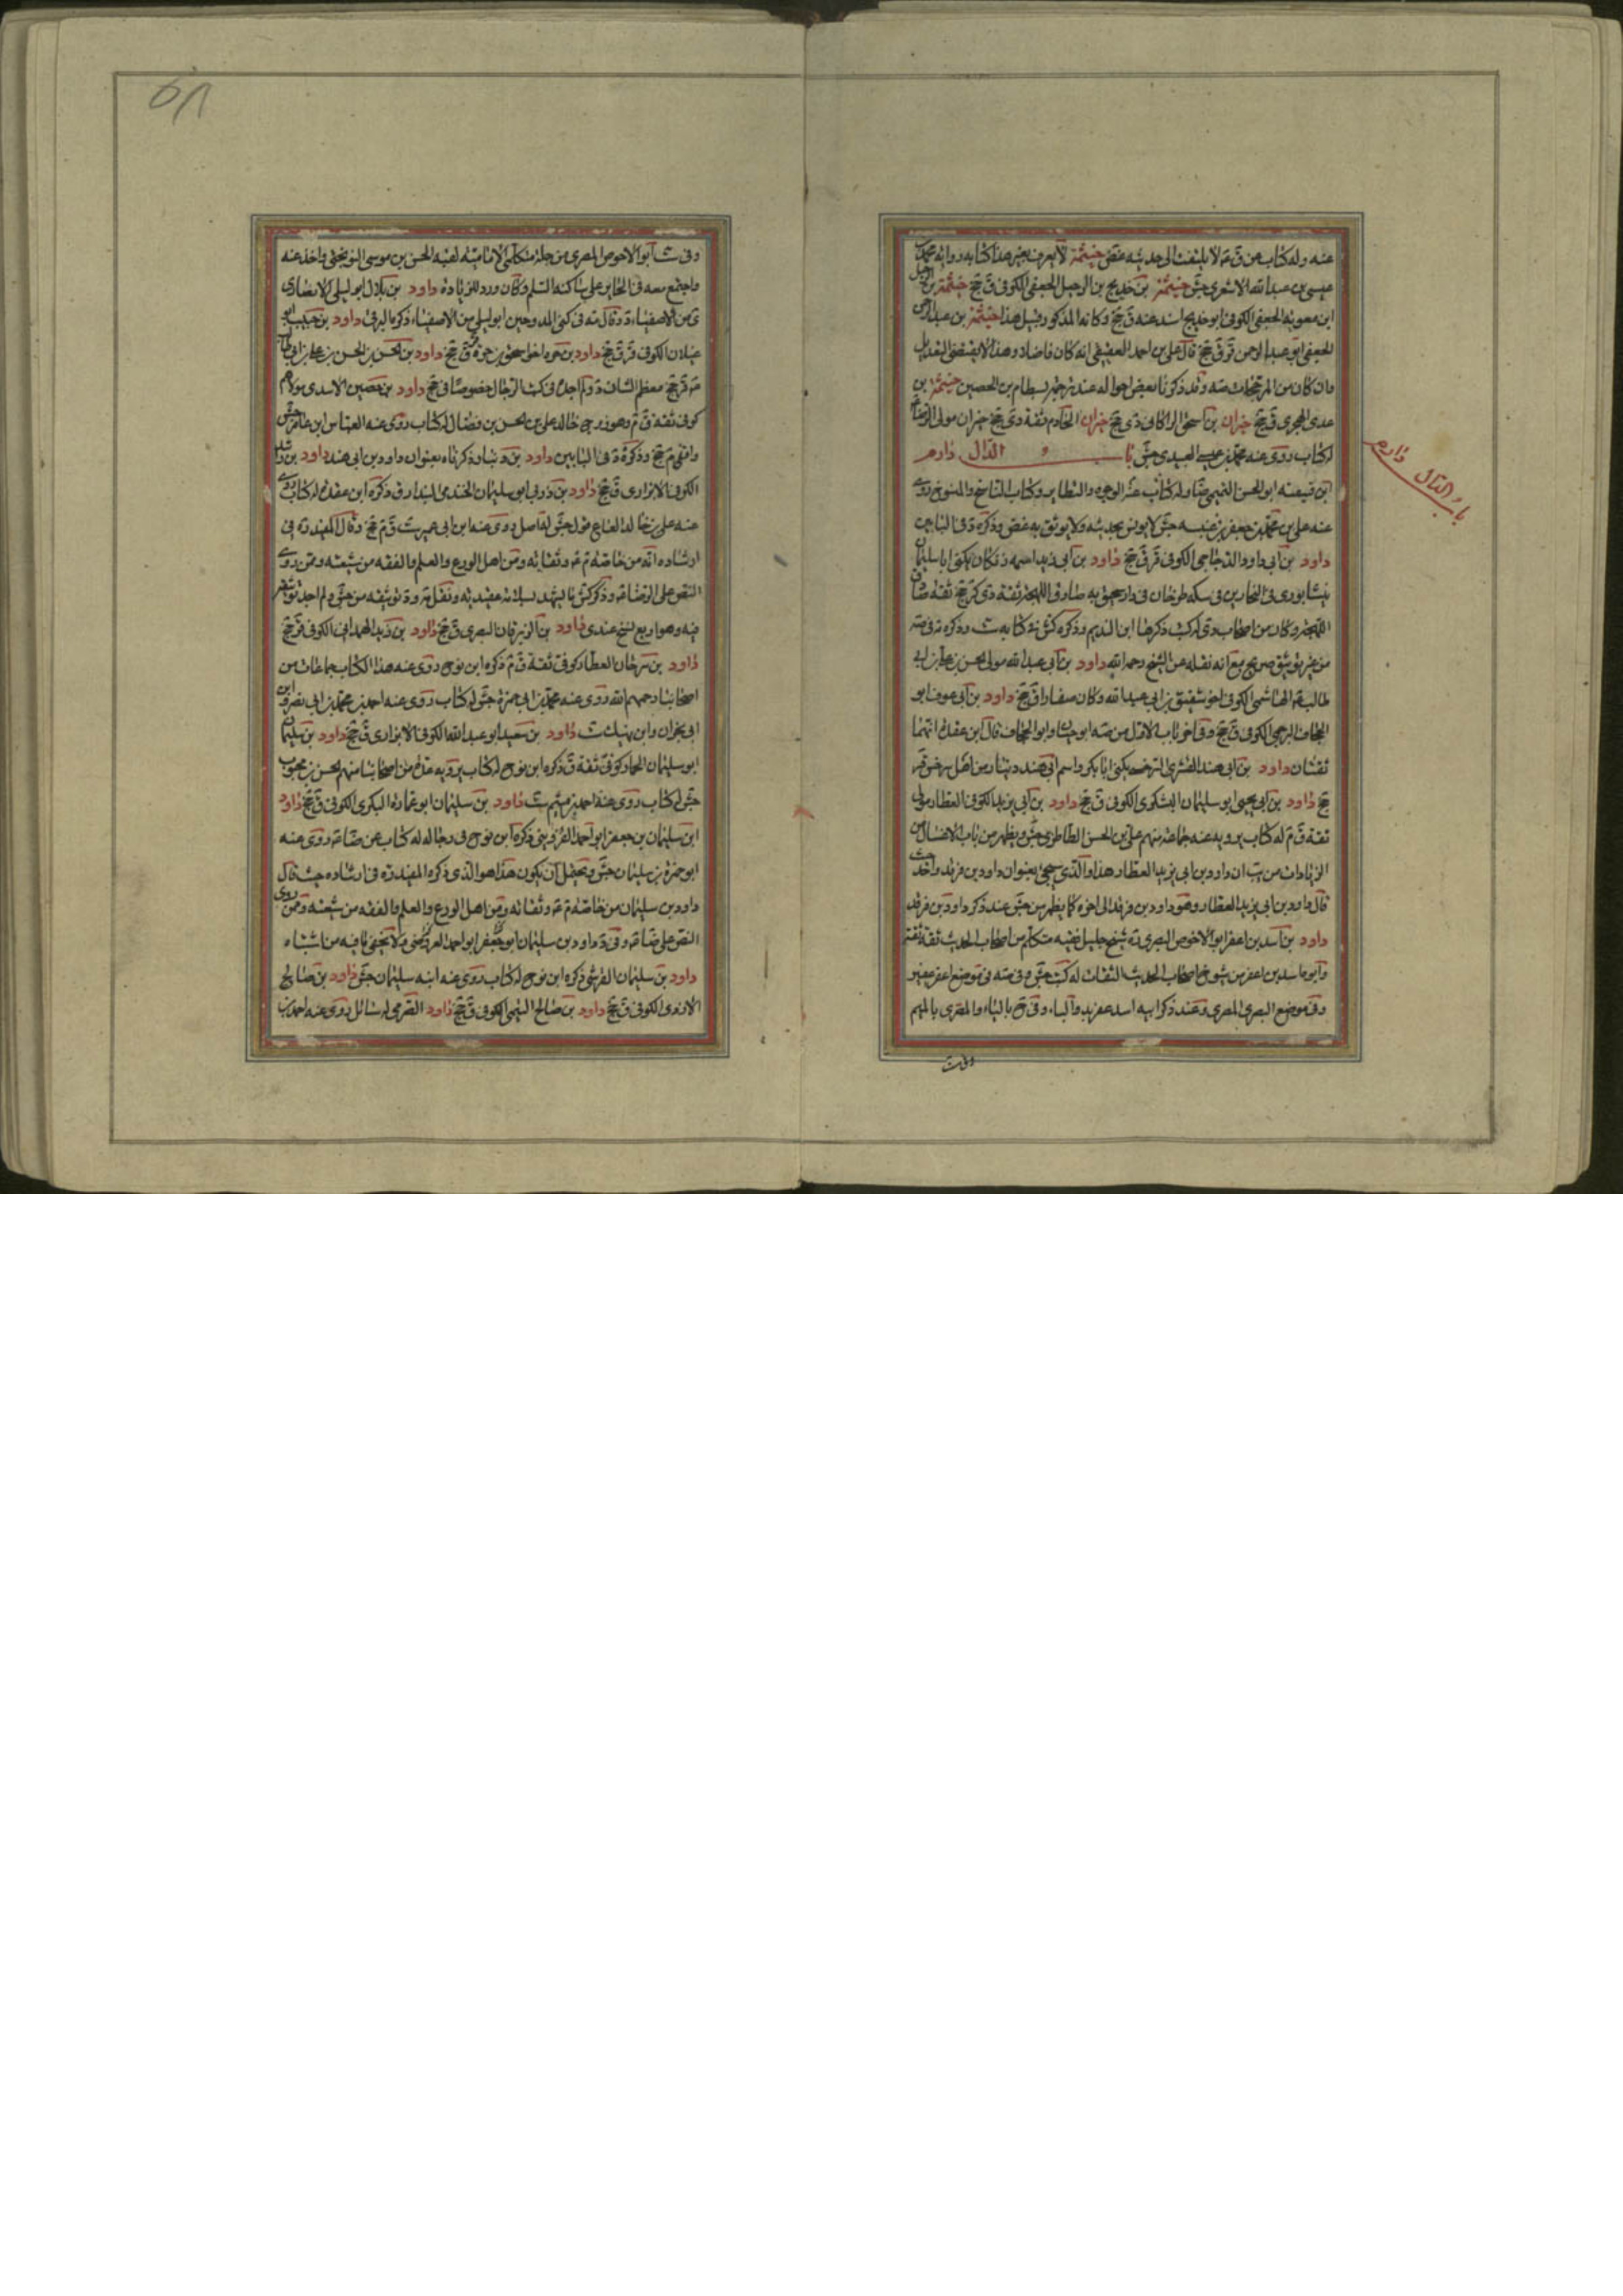 عنه وله كتاب عن ق م لا يلتفت الى حديثه غض خيثمة لا يعرف بغير هذا كتابه رواية محمد بن
عيسى بن عبدالله الاشعرى جش خيثمة بن خديج بن الرحيل الجعفى الكوفى ق جخ خيثمة بن الرحيل
ابن معوية الجعفى الكوفى ابو خديج اسند عنه ق جخ وكانه المذكور قبل هذا خيثمة بن عبد الرحمن
الجعفى ابو عبد الرحمن قر ق جخ قال على بن احمد العقيقى انه كان فاضلا وهذا لا يقتضى التعديل
وان كان من المرجحات صه وقد ذكرنا بعض احواله عند ترجمة بسطام بن الحصين خيثمة بن
عدى الهجرى ق جخ خيران بن اسحق الراكانى دى جخ خيران الخادم ثقة دى جخ خيران مولى الرضا
له كتاب روى عنه محمد بن عيسى العبيدى جش باب الدال دارم
ابن قبيصة ابو الحسن التميمى ضا وله كتاب عنه الوجوه والنظاير وكتاب الناسخ والمنسوخ روى
عنه على بن محمد بن جعفر بن عنبسه جش لا يونس بحديثه ولا يوثق به غض وذكره د فى البابين
داود بن ابى داود الدجاجى الكوفى قر ق جخ داود بن ابى زيد اسمه زنكان يكنى ابا سليمان
نيشابورى فى النجارين فى سكه طرخان فى دار سختويه صادق اللهجة ثقة دى كر جخ ثقة صادق
اللهجة وكان من اصحاب دى له كتب ذكرها ابن النديم وذكره كش فى كتابه ست وذكره فى صه
من غير توثيق صريح مع انه نقله عن الشيخ رحمه الله داود بن ابى عبد الله مولى الحسن بن على بن ابى
طالب الهاشمى الكوفى اخو شقيق بن ابى عبد الله وكان صفارا ق جخ داود بن ابى عوف ابو
الجحاف البرجمى الكوفى ق جخ وفى اخر باب الاول من صه ابو حباب وابو الجحاف قال ابن عقدة انهما
ثقتان داود بن ابى هند القشيرى السرخسى يكنى ابا بكر واسم ابى هند دينار من اهل سرخس قر
جخ داود بن ابى يحيى ابو سليمان اليشكرى الكوفى ق جخ داود بن ابى يزيد الكوفى العطار مولى
ثقة ق م له كتاب يرويه عنه جماعة منهم على بن الحسن الطاطرى جش ويظهر من باب الاغسال من
الزيادات من يب ان داود بن ابى يزيد العطار هذا والذى سيجئ بعنوان داود بن فرقد واحد حيث
قال داود بن ابى يزيد العطار وهو داود بن فرقد الى اخره كما يظهر من جش عند ذكر داود بن فرقد
داود بن اسد بن اعفر ابو الاحوص البصرى ره شيخ جليل فقيه متكلم من اصحاب الحديث ثقة ثقة
وابوه اسد بن اعفر من شيوخ اصحاب الحديث الثقات له كتب جش وفى صه فى موضع اعفر عفير
وفى موضع البصرى المصرى وعند ذكر ابيه اسد عفر بد والباء وفى ح بالباء والمصرى بالميم
وفى ست
باب الدال دارم
٥٨
وفى ست ابو الاحوص المصرى من جلة متكلمى الامامية لقيه الحسن بن موسى النوبختى واخذ عنه
واجتمع معه فى الحاير على ساكنه السلم وكان ورد للزيارة داود بن بلال ابو ليلى الانصارى
ى من الاصفياء د وقال صه فى كنى الممدوحين ابو ليلى من الاصفياء ذكره البرقى داود بن حبيب ابو
غيلان الكوفى قر ق جخ داود بن حره اخو اسحق بن حرة ق جخ داود بن الحسن بن الحسن بن على بن ابى طالب
قر جخ معظم الشان د ولم اجده فى كتب الرجال خصوصا فى جخ داود بن حصين الاسدى مولاهم
كوفى ثقة ق م وهو زوج خالة على بن الحسن بن فضال له كتاب روى عنه العباس ابن عامر جش
واقفى م جخ وذكره د فى البابين داود بن دينار ذكرناه بعنوان داود بن ابى هند داود بن راشد
الكوفى الابزارى ق جخ داود بن زربى ابو سليمان الخندقى البندار ق ذكره ابن عقدة له كتاب روى
عنه على بن خالد العاقولى جش له اصل روى عنه ابن ابى عمير ست ق م جخ وقال المفيد ره فى
ارشاده انه من خاصة م ع وثقاته ومن اهل الورع والعلم والفقه من شيعته وممن روى
النص على الرضا ع وذكر كش ما يشهد بسلامة عقيدته ونقل صه د توثيقه من جش ولم اجد توثيقه
فيه وهو اربع نسخ عندى داود بن الزبرقان البصرى ق جخ داود بن زيد الهمدانى الكوفى قر جخ
داود بن سرحان العطار كوفى ثقة ق م ذكره ابن نوح روى عنه هذا الكتاب جماعات من
اصحابنا رحمهم الله روى عنه محمد بن ابى حمزة جش له كتاب روى عنه احمد بن محمد بن ابى نصر وابن
ابى نجران وابن نهيك ست داود بن سعيد ابو عبد الله الكوفى الابزارى ق جخ داود بن سليمان
ابو سليمان الحمار كوفى ثقة ق ذكره ابن نوح له كتاب يرويه عدة من اصحابنا منهم الحسن بن محبوب
جش له كتاب روى عنه احمد بن ميثم ست داود بن سليمان ابو عمارة البكرى الكوفى ق جخ داود
ابن سليمان بن جعفر ابو احمد القزوينى ذكره ابن نوح فى رجاله له كتاب عن ضا ع روى عنه
ابو حمزة بن سليمان جش ويحتمل ان يكون هذا هو الذى ذكره المفيد ره فى ارشاده حيث قال
داود بن سليمان من خاصة م ع وثقاته ومن اهل الورع والعلم والفقه من شيعته وممن روى
النص على ضا ع وفى د داود بن سليمان ابو جعفر ابو احمد القزوينى ولا يخفى ما فيه من اشتباه
داود بن سليمان القرشى ذكره ابن نوح له كتاب روى عنه ابنه سليمان جش داود بن صالح
الازدى الكوفى ق جخ داود بن صالح التيمى الكوفى ق جخ داود الصرمى له مسائل روى عنه احمد بن